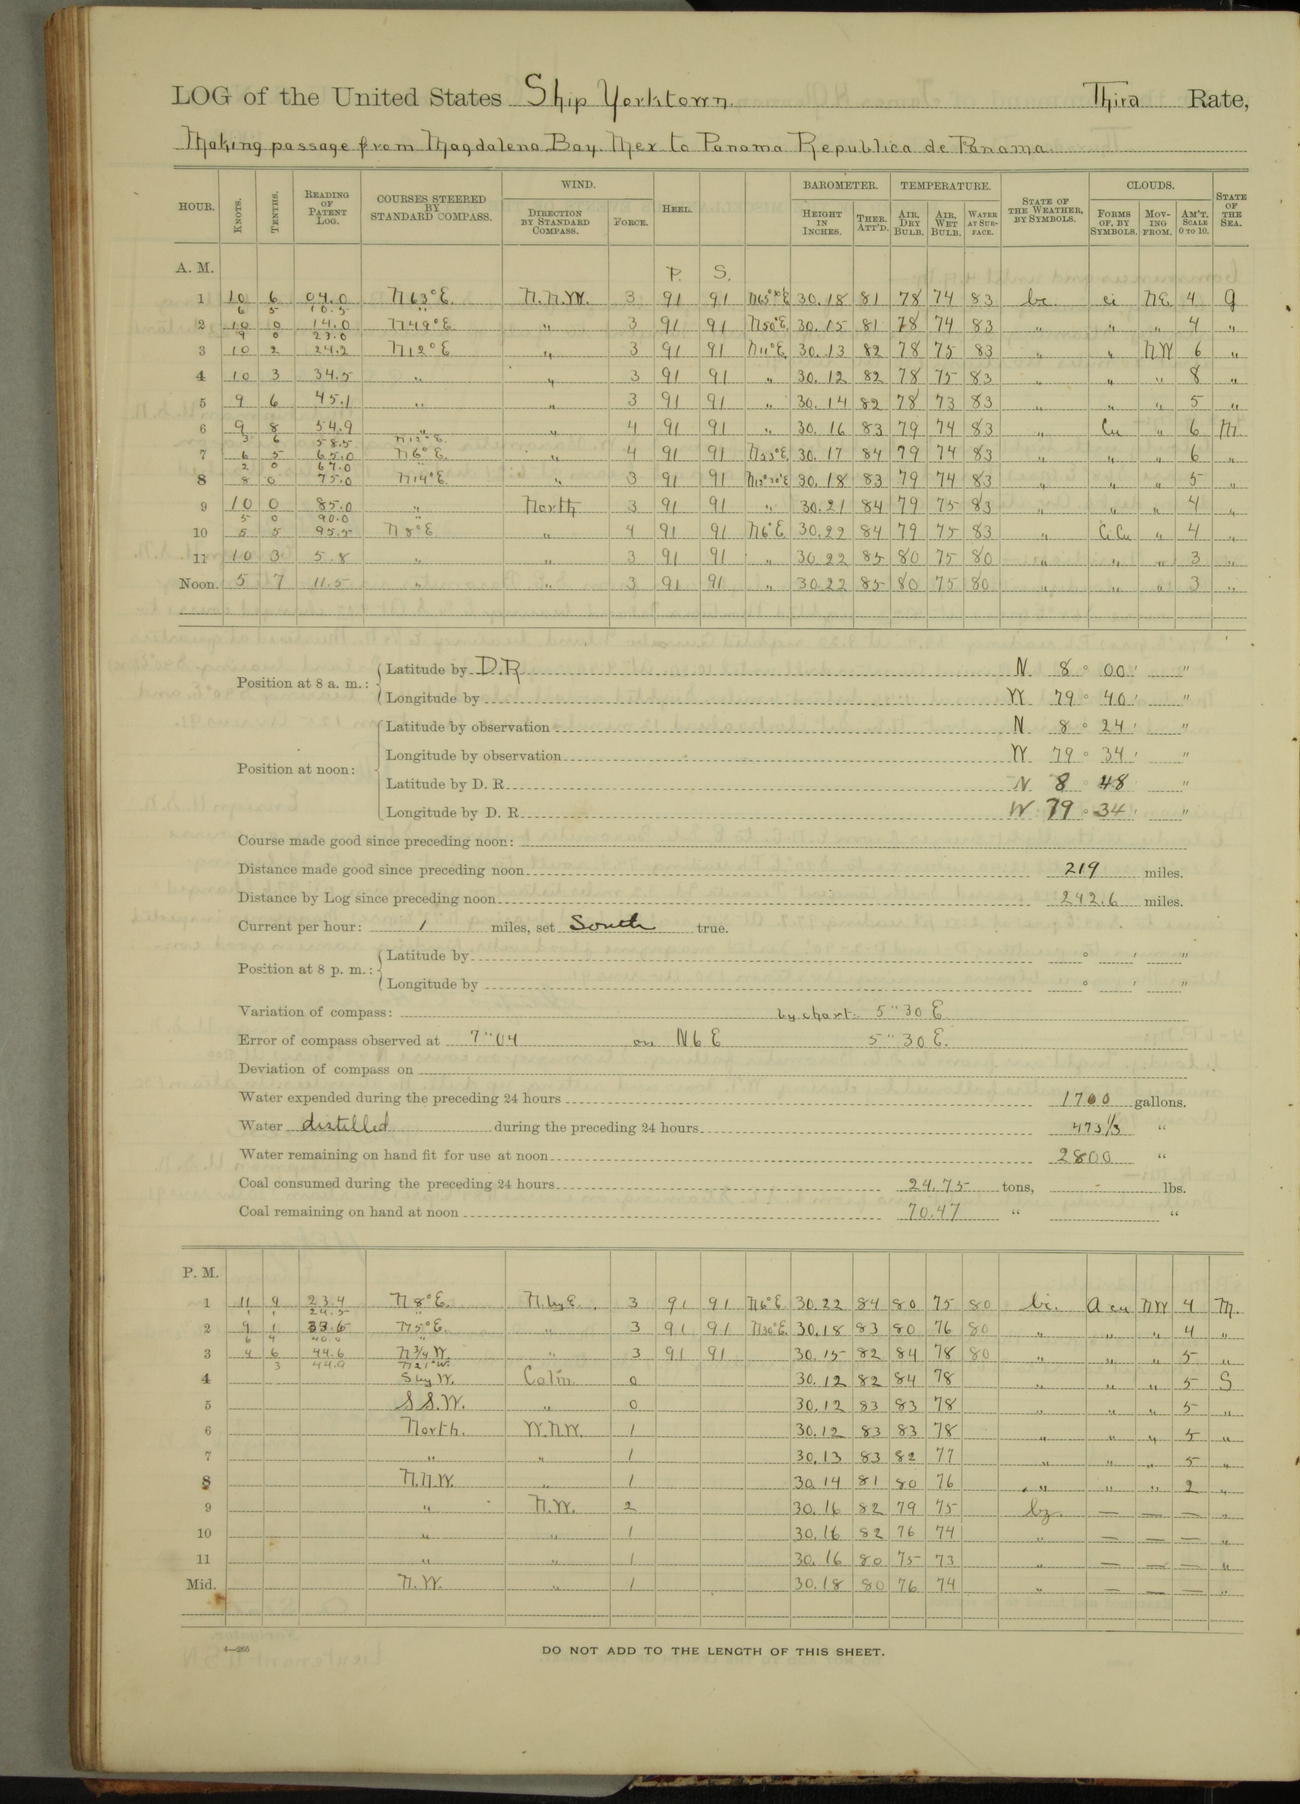 LOG of the United States Ship Yorktown. Third Rate,
Making passage from Magdalena Bay. Mex to Panama Republica de Panama.
HOUR. KNOTS. TENTHS. READING OF PATENT LOG. COURSES STEERED BY STANDARD COMPASS. WIND. DIRECTION BY STANDARD COMPASS. FORCE. HEEL. BAROMETER. HEIGHT IN INCHES. THER. ATT'D. TEMPERATURE. AIR, DRY BULB. AIR, WET BULB. WATER AT SURFACE. STATE OF THE WEATHER, BY SYMBOLS. CLOUDS. FORMS OF, BY SYMBOLS. MOVING FROM. AM'T. SCALE 0 TO 10. STATE OF THE SEA.
A. M. P. S.
1 10 6 04.0 N 63° E. N.N.W. 3 91 91 30.18 81 78 74 83 bc. ci NE 4 G
6 5 10.5 "
2 10 0 14.0 N 49° E " 3 91 91 N50°E 30.15 81 78 74 83 " " " 4 "
9 0 23.0
3 10 2 24.2 N 12° E " 3 91 91 N11°E 30.13 82 78 75 83 " " NW 6 "
4 10 3 34.5 " " 3 91 91 " 30.12 82 78 75 83 " " " 8 "
5 9 6 45.1 " " 3 91 91 " 30.14 82 78 73 83 " " " 5 "
6 9 8 54.9 " " 4 91 91 " 30.16 83 79 74 83 " Cu " 6 M.
3 6 58.5 N 12° E
7 6 5 65.0 N 6° E. " 4 91 91 30.17 84 79 74 83 " " " 6 "
2 0 67.0 "
8 8 0 75.0 N 14° E. " 3 91 91 30.18 83 79 74 83 " " " 5 "
9 10 0 85.0 " North 3 91 91 " 30.21 84 79 75 83 " " " 4 "
5 0 90.0 "
10 5 5 95.5 N 8° E " 4 91 91 N6°E 30.22 84 79 75 83 " Ci Cu " 4 "
11 10 3 5.8 " " 3 91 91 " 30.22 85 80 75 80 " " " 3 "
Noon. 5 7 11.5 " " 3 91 91 " 30.22 85 80 75 80 " " " 3 "
Position at 8 a. m.: Latitude by D.R N 8 ° 00 ' "
Longitude by W 79 ° 40 ' "
Position at noon: Latitude by observation N 8 ° 24 ' "
Longitude by observation W 79 ° 34 ' "
Latitude by D. R. N 8 ° 48 ' "
Longitude by D. R. W 79 ° 34 ' "
Course made good since preceding noon:
Distance made good since preceding noon 219 miles.
Distance by Log since preceding noon 242.6 miles.
Current per hour: 1 miles, set South true.
Position at 8 p. m.: Latitude by ° ' "
Longitude by ° ' "
Variation of compass: by chart: 5° 30 E
Error of compass observed at 7" 04 on N 6 E 5° 30 E.
Deviation of compass on
Water expended during the preceding 24 hours 1700 gallons.
Water distilled during the preceding 24 hours 473 1/3 "
Water remaining on hand fit for use at noon 2800 "
Coal consumed during the preceding 24 hours 24.75 tons, - lbs.
Coal remaining on hand at noon 70.47 " "
P. M.
1 11 9 23.4 N 8° E. N. by E. 3 91 91 N6°E 30.22 84 80 75 80 bc. A cu NW 4 M.
1 1 24.5 "
2 9 1 33.6 N 5° E. " 3 91 91 30.18 83 80 76 80 " " " 4 "
6 4 40.0 "
3 4 6 44.6 N 3/4 W. " 3 91 91 30.15 82 84 78 80 " " " 5 "
3 44.9 N 21° W.
4 S by W. Calm 0 30.12 82 84 78 " " " 5 S
5 S.S.W. " 0 30.12 83 83 78 " " " 5 "
6 North. W.N.W. 1 30.12 83 83 78 " " " 5 "
7 " " 1 30.13 83 82 77 " " " 5 "
8 N.N.W. " 1 30.14 81 80 76 " " " 2 "
9 " N.W. 2 30.16 82 79 75 bz. — — — "
10 " " 1 30.16 82 76 74 " — — — "
11 " " 1 30.16 80 75 73 " — — — "
Mid. N.W. " 1 30.18 80 76 74 " — — — "
4—265 DO NOT ADD TO THE LENGTH OF THIS SHEET.